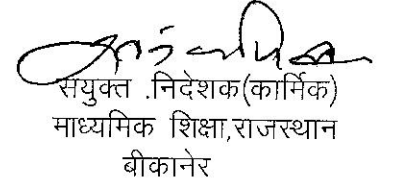 संयुक्त .निदेशक(कार्मिक)
माध्यमिक शिक्षा,राजस्थान
बीकानेर